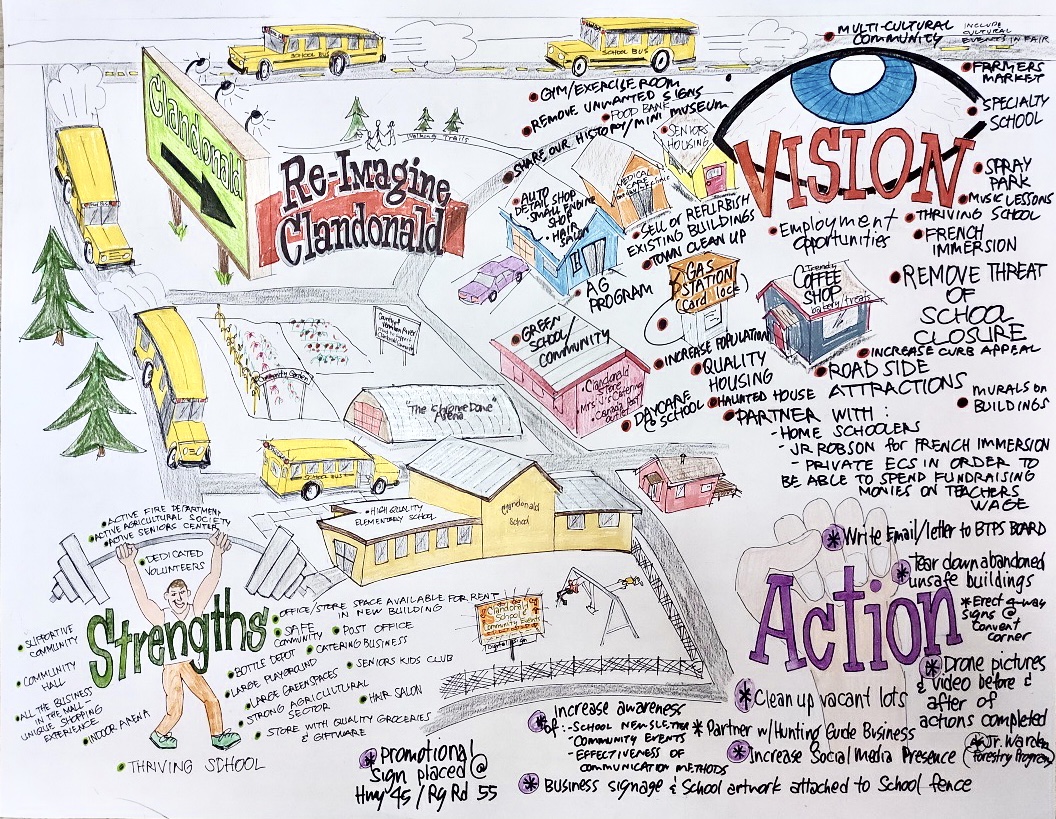 SCHOOL BUS
SCHOOL BUS
Clandonald
Re-Imagine
Clandonald
Walking Trails
MULTI-CULTURAL
COMMUNITY
INCLUDE
CULTURAL
EVENTS IN FAIR
FARMERS
MARKET
SPECIALTY
SCHOOL
VISION
SPRAY
PARK
MUSIC LESSONS
THRIVING SCHOOL
FRENCH
IMMERSION
Employment
opportunities
GYM/EXERCISE ROOM
REMOVE UNWANTED SIGNS
FOOD BANK
SHARE OUR HISTORY/MINI MUSEUM
SENIORS
HOUSING
MEDICAL
CARE
AUTO
DETAIL SHOP
SMALL ENGINE
SHOP
HAIR
SALON
SELL OR REFURBISH
EXISTING BUILDINGS
TOWN CLEAN UP
AG
PROGRAM
GAS
STATION
(Card lock)
Trendy
COFFEE
SHOP
bakery/treats
REMOVE THREAT
OF
SCHOOL
CLOSURE
GREEN
SCHOOL
COMMUNITY
Clandonald
Store
Mrs. J's Catering
Canada Post
outlet
INCREASE POPULATION
QUALITY
HOUSING
HAUNTED HOUSE
DAYCARE
@ SCHOOL
INCREASE CURB APPEAL
ROAD SIDE
ATTRACTIONS
MURALS ON
BUILDINGS
PARTNER WITH:
- HOME SCHOOLERS
- JR ROBSON for FRENCH IMMERSION
- PRIVATE ECS IN ORDER TO
BE ABLE TO SPEND FUNDRAISING
MONIES ON TEACHERS
WAGE
County of
Vermilion River
Community Garden
"The Chrome Dome
Arena"
SCHOOL BUS
HIGH QUALITY
ELEMENTARY SCHOOL
Clandonald
School
ACTIVE FIRE DEPARTMENT
ACTIVE AGRICULTURAL SOCIETY
ACTIVE SENIORS CENTER
DEDICATED
VOLUNTEERS
Strengths
OFFICE/STORE SPACE AVAILABLE FOR RENT
IN NEW BUILDING
SAFE
COMMUNITY
POST OFFICE
CATERING BUSINESS
BOTTLE DEPOT
SENIORS KIDS CLUB
LARGE PLAYGROUND
LARGE GREENSPACES
STRONG AGRICULTURAL
SECTOR
HAIR SALON
STORE WITH QUALITY GROCERIES
& GIFTWARE
SUPPORTIVE
COMMUNITY
COMMUNITY
HALL
ALL THE BUSINESS
IN THE MALL
UNIQUE SHOPPING
EXPERIENCE
INDOOR ARENA
THRIVING SCHOOL
Clandonald
School
Community Events
Digital Sign
Action
Write Email/letter to BTPS BOARD
Tear down abandoned
unsafe buildings
Erect 4-way
signs @
Convent
corner
Drone pictures
& video before &
after of
actions completed
Clean up vacant lots
Increase awareness
of: - SCHOOL NEWSLETTER
- COMMUNITY EVENTS
- EFFECTIVENESS OF
COMMUNICATION METHODS
* Partner w/Hunting Guide Business
* Increase Social Media Presence
* Jr. Warden
(Forestry Program)
* Promotional
Sign placed @
Hwy 45 / Rg Rd 55
* Business signage & School artwork attached to School fence